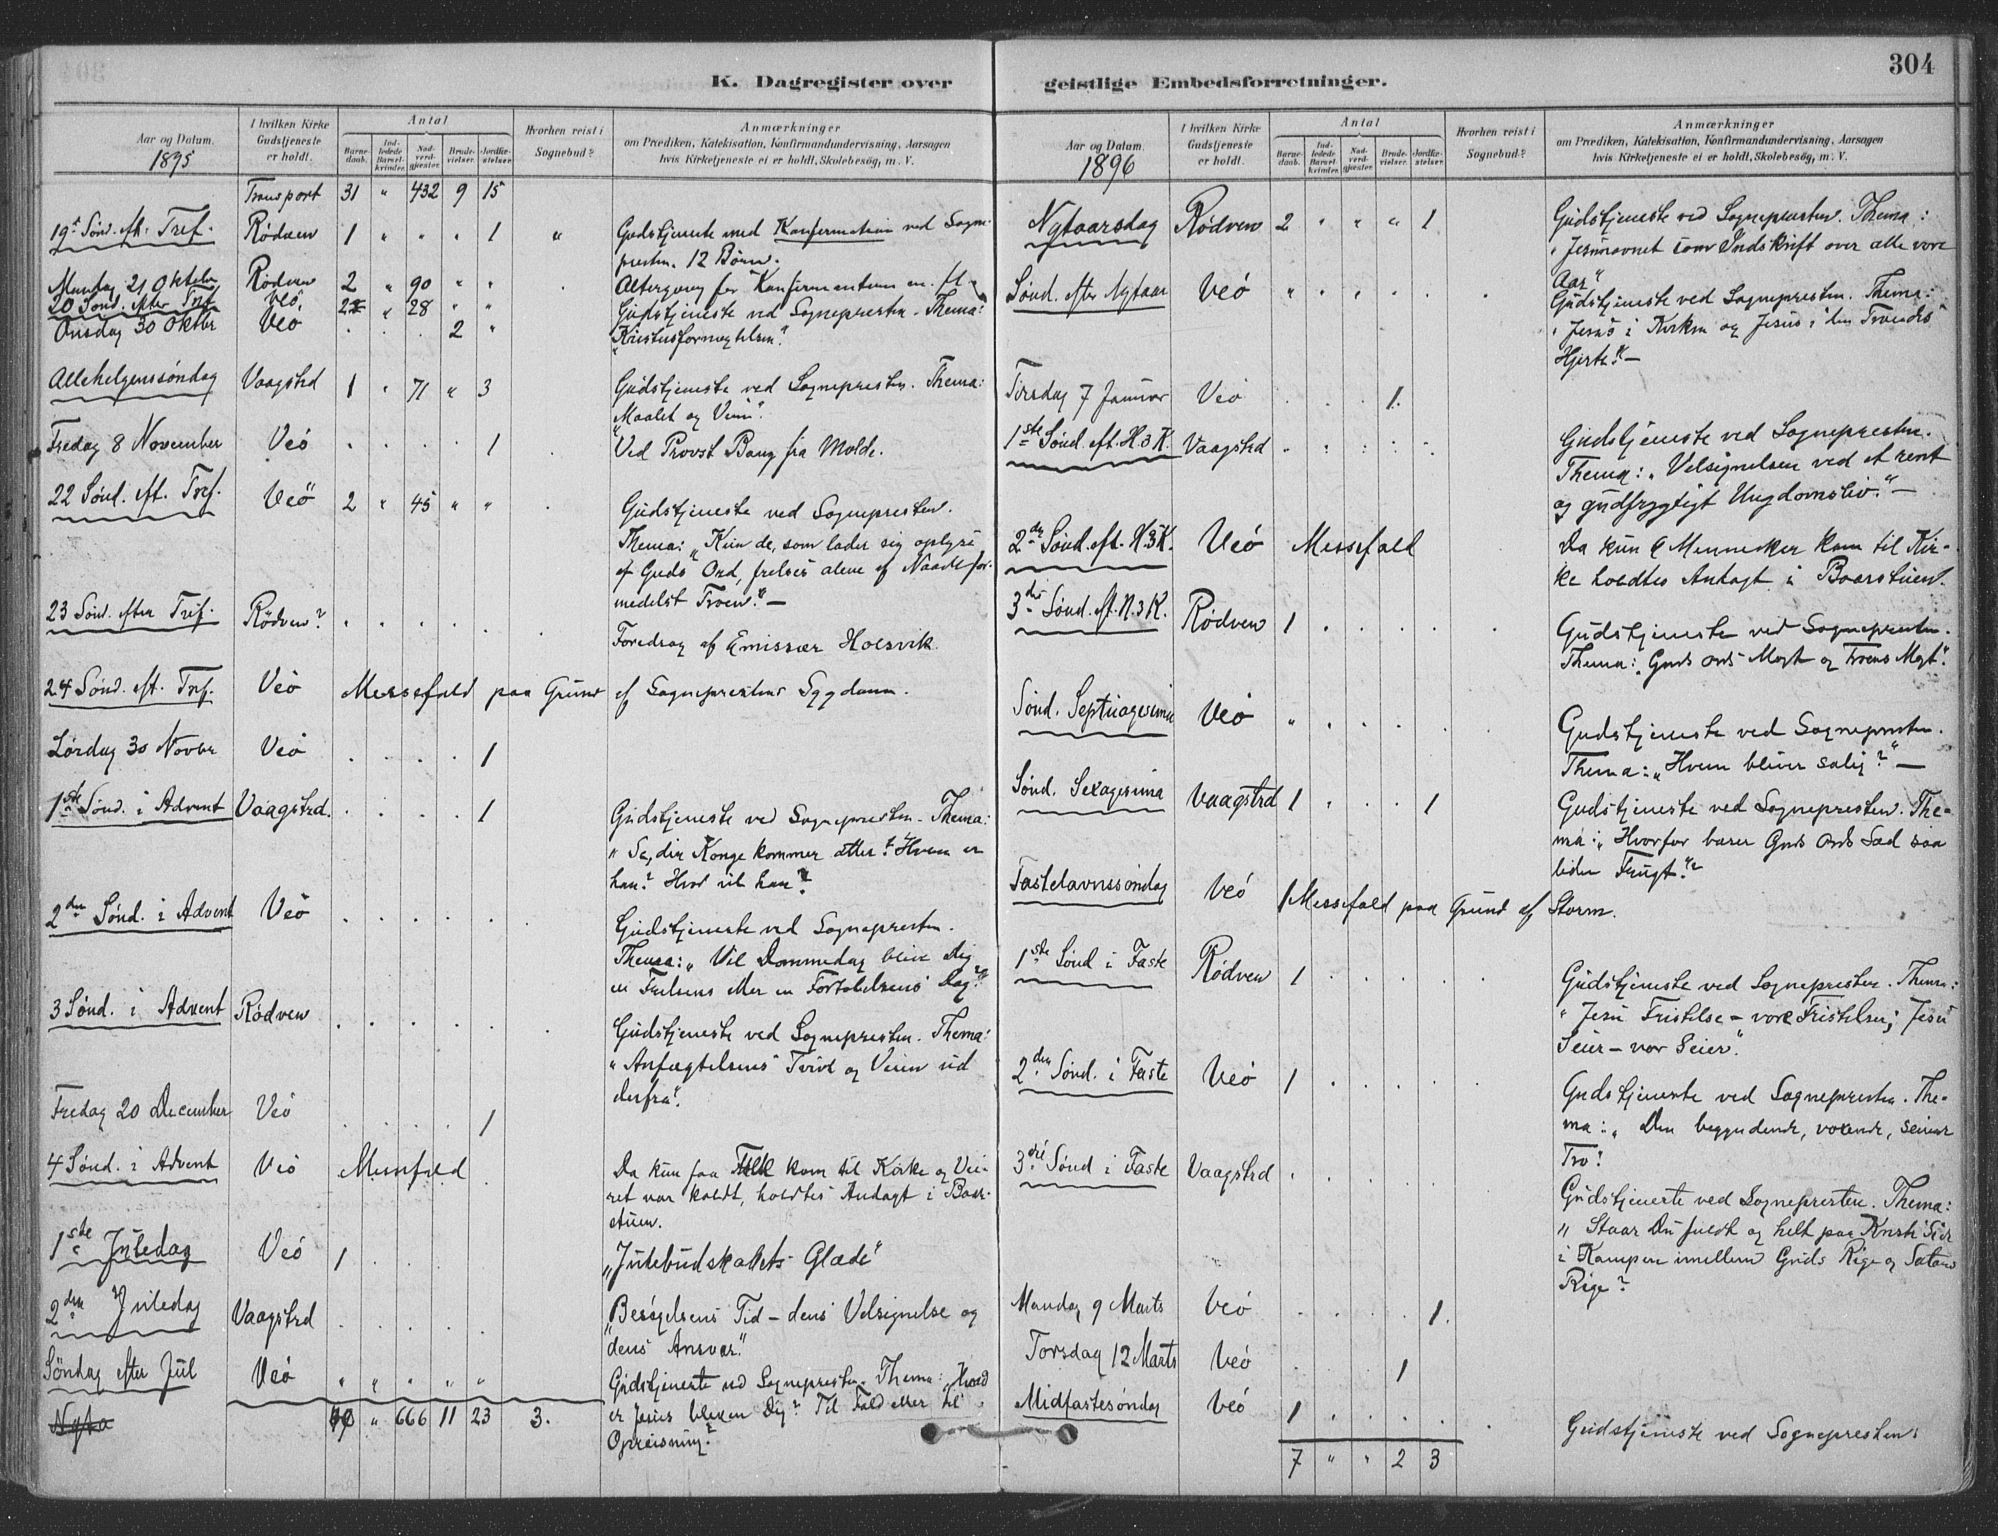 304
K. Dagregister over
geistlige Embedsforretninger.
Aar og Datum.
1895
I hvilken Kirke Gudstjeneste er holdt.
Antal
Barnedaab.
Indledede Barselkvinder.
Nadverdgjester.
Brudevielser.
Jordfæstelser.
Hvorhen reist i Sognebud?
Anmærkninger
om Prædiken, Katekisation, Konfirmandundervisning, Aarsagen
hvis Kirketjeneste ei er holdt, Skolebesøg, m. V.
Transport 31 " 432 9 15
19de Sønd. eft. Tref. Rødven 1 " " " 1 " Gudstjeneste med Konfirmation ved Sogne-
presten. 12 Børn.
Mandag 21 Oktober Rødven 2 " 90 " " Altergang for Konfirmanterne m. fl.
20 Sønd. efter Tref. Veö 2 " 28 " " Gudstjeneste ved Sognepresten. Thema:
Onsdag 30 Oktbr Veö . . . 2 " "Kristusfornegtelsen".
Allehelgenssøndag Vaagstrd 1 " 71 " 3 Gudstjeneste ved Sognepresten. Thema:
"Maalet og Veien".
Fredag 8 November Veö . . . . 1 Ved Provst Bang fra Molde.
22 Sønd. eft. Tref. Veö 2 " 45 " " Gudstjeneste ved Sognepresten.
Thema: "Kun de, som lader sig oplyse
af Guds Ord, frelses alene af Naade for-
medelst Troen". —
23 Sønd. efter Tref. Rødven? . . . . . Foredrag af Emissær Holsvik
24 Sønd. eft. Tref. Veö Messefald paa Grund af Sogneprestens Sygdom.
Lørdag 30 Novbr Veö . . . . 1
1ste Sønd. i Advent Vaagstrd. . . . . 1 Gudstjeneste ved Sognepresten. Thema:
"Se, din Konge kommer atter? Hvem er
han? Hvad vil han"?
2den Sønd. i Advent Veö . . . . . Gudstjeneste ved Sognepresten.
Thema: "Vil Dommedag blive Dig
en Frelsens eller en Fortabelsens Dag"?
3 Sønd. i Advent Rødven . . . . . Gudstjeneste ved Sognepresten. Thema:
"Anfægtelsens Tvivl og Veien ud
derfra".
Fredag 20 December Veö . . . . 1
4 Sønd. i Advent Veö Messefald Da kun faa Folk kom til Kirke og Vei-
ret var koldt, holdtes Andagt i Baar-
stuen.
1ste Juledag Veö 1 . . . "Julebudskabets Glæde"
2den Juledag Vaagstrd . . . . . "Besøgelsens Tid – dens Velsignelse og
dens Ansvar."
Søndag efter Jul Veö " " " " " Gudstjeneste ved Sognepresten. Thema: "Hvad
er Jesus bleven Dig? Til Fald eller til
Opreisning?
Nyta " 666 11 23 3.
Aar og Datum.
1896
I hvilken Kirke Gudstjeneste er holdt.
Antal
Barnedaab.
Indledede Barselkvinder.
Nadverdgjester.
Brudevielser.
Jordfæstelser.
Hvorhen reist i Sognebud?
Anmærkninger
om Prædiken, Katekisation, Konfirmandundervisning, Aarsagen
hvis Kirketjeneste ei er holdt, Skolebesøg, m. V.
Nytaarsdag Rødven 2 " " " 1 Gudstjeneste ved Sognepresten. Thema:
"Jesunavnet som Indskrift over alle vore
Aar"
Sønd. efter Nytaar Veö " " " . . Gudstjeneste ved Sognepresten. Thema:
"Jesus i Kirken og Jesus i den Troendes
Hjerte". —
Tirsdag 7 Januar Veö . . . 1.
1ste Sønd. eft. H.3K. Vaagstrd . . . . . Gudstjeneste ved Sognepresten.
Thema: "Velsignelsen ved et rent
og gudfrygtigt Ungdomsliv." —
2den Sønd. eft. H.3K. Veö Messefald Da kun 9 Mennesker kom til Kir-
ke holdtes Andagt i Baarstuen.
3die Sønd. eft. H.3K. Rødven 1 . . . . Gudstjeneste ved Sognepresten.
Thema: "Guds ords Magt og Troens Magt".
Sønd. Septuagesima Veö " . . . . Gudstjeneste ved Sognepresten.
Thema: "Hvem bliver salig?" —
Sønd. Sexagesima Vaagstrd 1 . . . 1 Gudstjeneste ved Sognepresten. The-
ma: "Hvorfor bærer Guds Ords Sæd saa
liden Frugt"?
Fastelavnssøndag Veö 1 Messefald paa Grund af Storm.
1ste Sønd i Faste Rødven 1 . . . . Gudstjeneste ved Sognepresten. Thema:
"Jesu Fristelse – vore Fristelser; Jesu
Seier – vor Seier".
2den Sønd. i Faste Veö 1 . . . . Gudstjeneste ved Sognepresten. The-
ma: "Den begyndende, voxende, seirende
Tro".
3die Sønd i Faste Vaagstrd . . . . . Gudstjeneste ved Sognepresten. Thema:
"Staar Du fuldt og helt paa Kristi Side
i Kampen imellem Guds Rige og Satans
Rige?
Mandag 9 Marts Veö . . . . 1.
Torsdag 12 Marts Veö . . . 1
Midfastesøndag Veö 1 . . . . Gudstjeneste ved Sognepresten.
7 " " 2 3